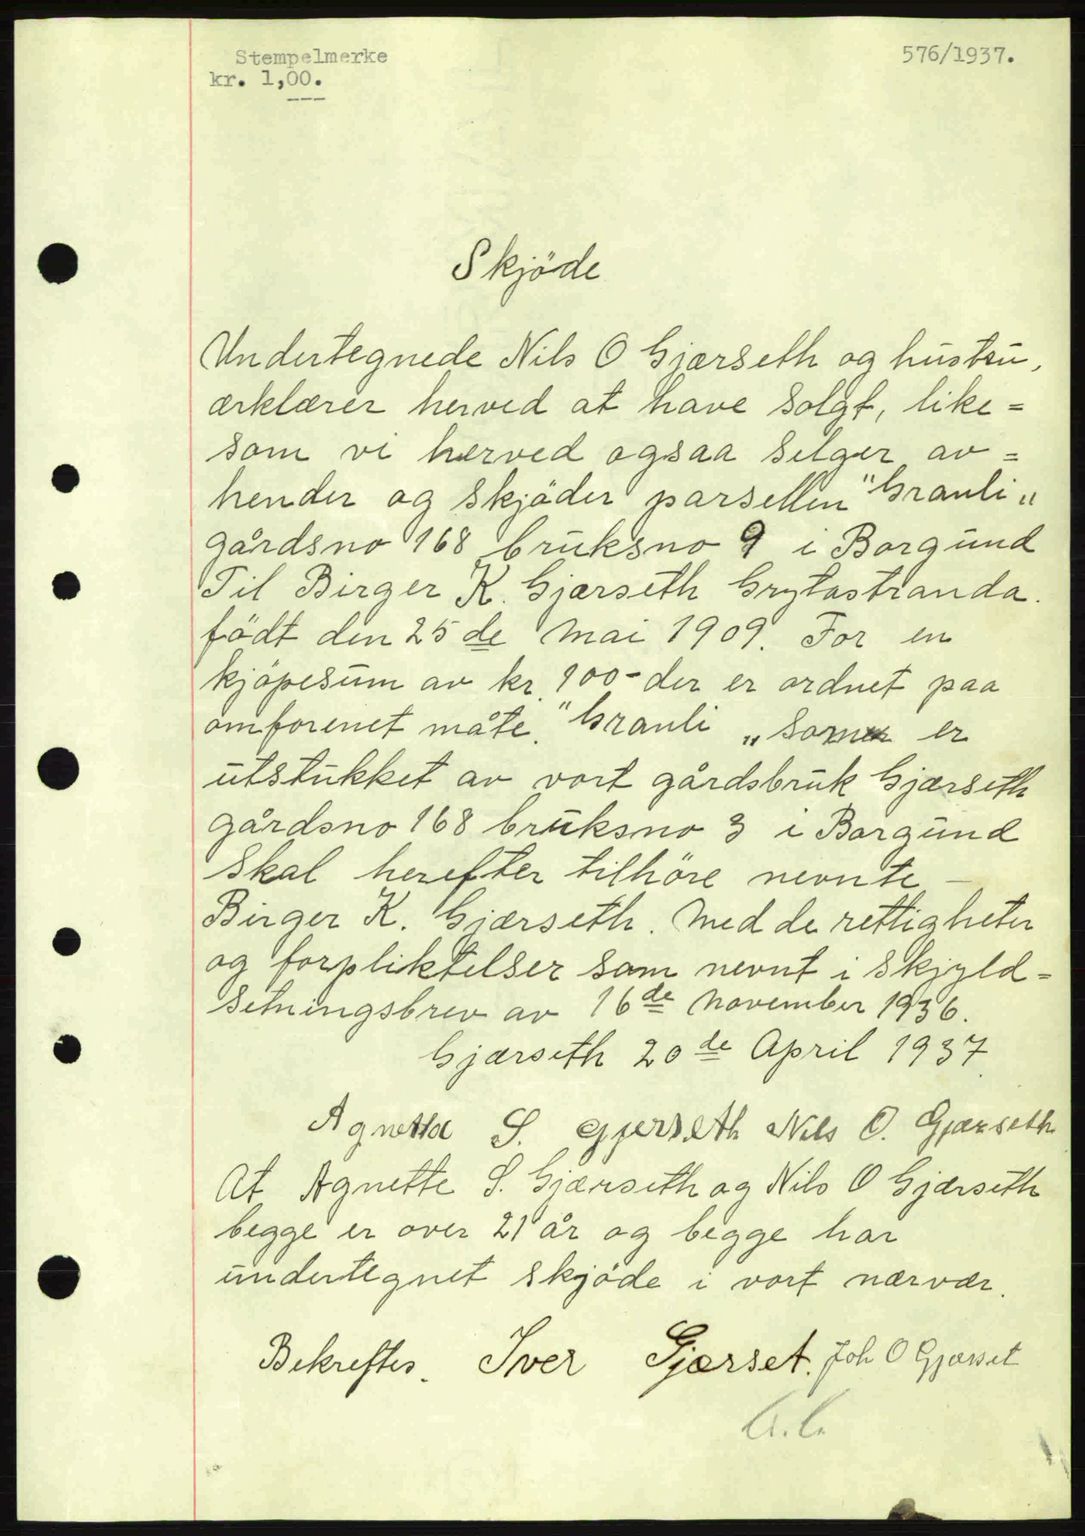 Stempelmerke
kr. 1,00.
576/1937.
Skjöde
Undertegnede Nils O Gjærseth og hustru,
erklærer herved at have solgt, like=
som vi herved ogsaa selger av=
hender og skjöder parsellen "Granli"
gårdsno 168 bruksno 9 i Borgund
Til Birger K. Gjærseth Grytastranda.
födt den 25de Mai 1909. For en
kjöpesum av kr. 100- der er ordnet paa
omforenet måte. "Granli" som er
utstukket av vort gårdsbruk Gjærseth
gårdsno 168 bruksno 3 i Borgund
skal herefter tilhöre nevnte -
Birger K. Gjærseth. Med de rettigheter
og forpliktelser som nevnt i skjyld=
setningsbrev av 16de November 1936.
Gjærseth 20de April 1937.
Agnetta S. Gjerseth Nils O. Gjærseth
At Agnette S. Gjærseth og Nils O Gjærseth
begge er over 21 år og begge har
undertegnet skjöde i vort nærvær.
Bekreftes. Iver Gjærset. Joh O Gjærset